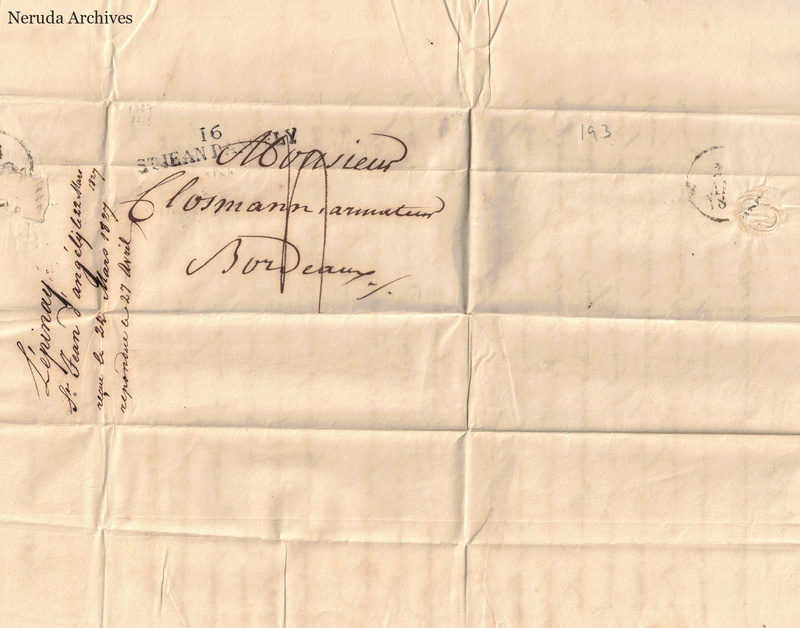 Neruda Archives
193
16
ST JEAN D
Monsieur
Closmann, armateur
Bordeaux
Lépinay
St. Jean d'angély le 22 Mars 1827
reçue le 24 Mars 1827
repondue le 27 Avril